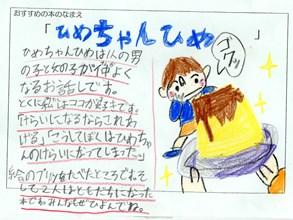 おすすめの本のなまえ
「ひめちゃんひめ」
ひめちゃんひめは1人の男
の子と女の子が仲よく
なるお話しです。
とくに私はココが好きです。
「けらいになるならこれあ
げる」「こうしてぼくはひめちゃ
んのけらいになってしまった。」
絵のプリンをたべたところでした
そして2人はともだちになった
本でみんなもぜひよんでね。
ゴクッ